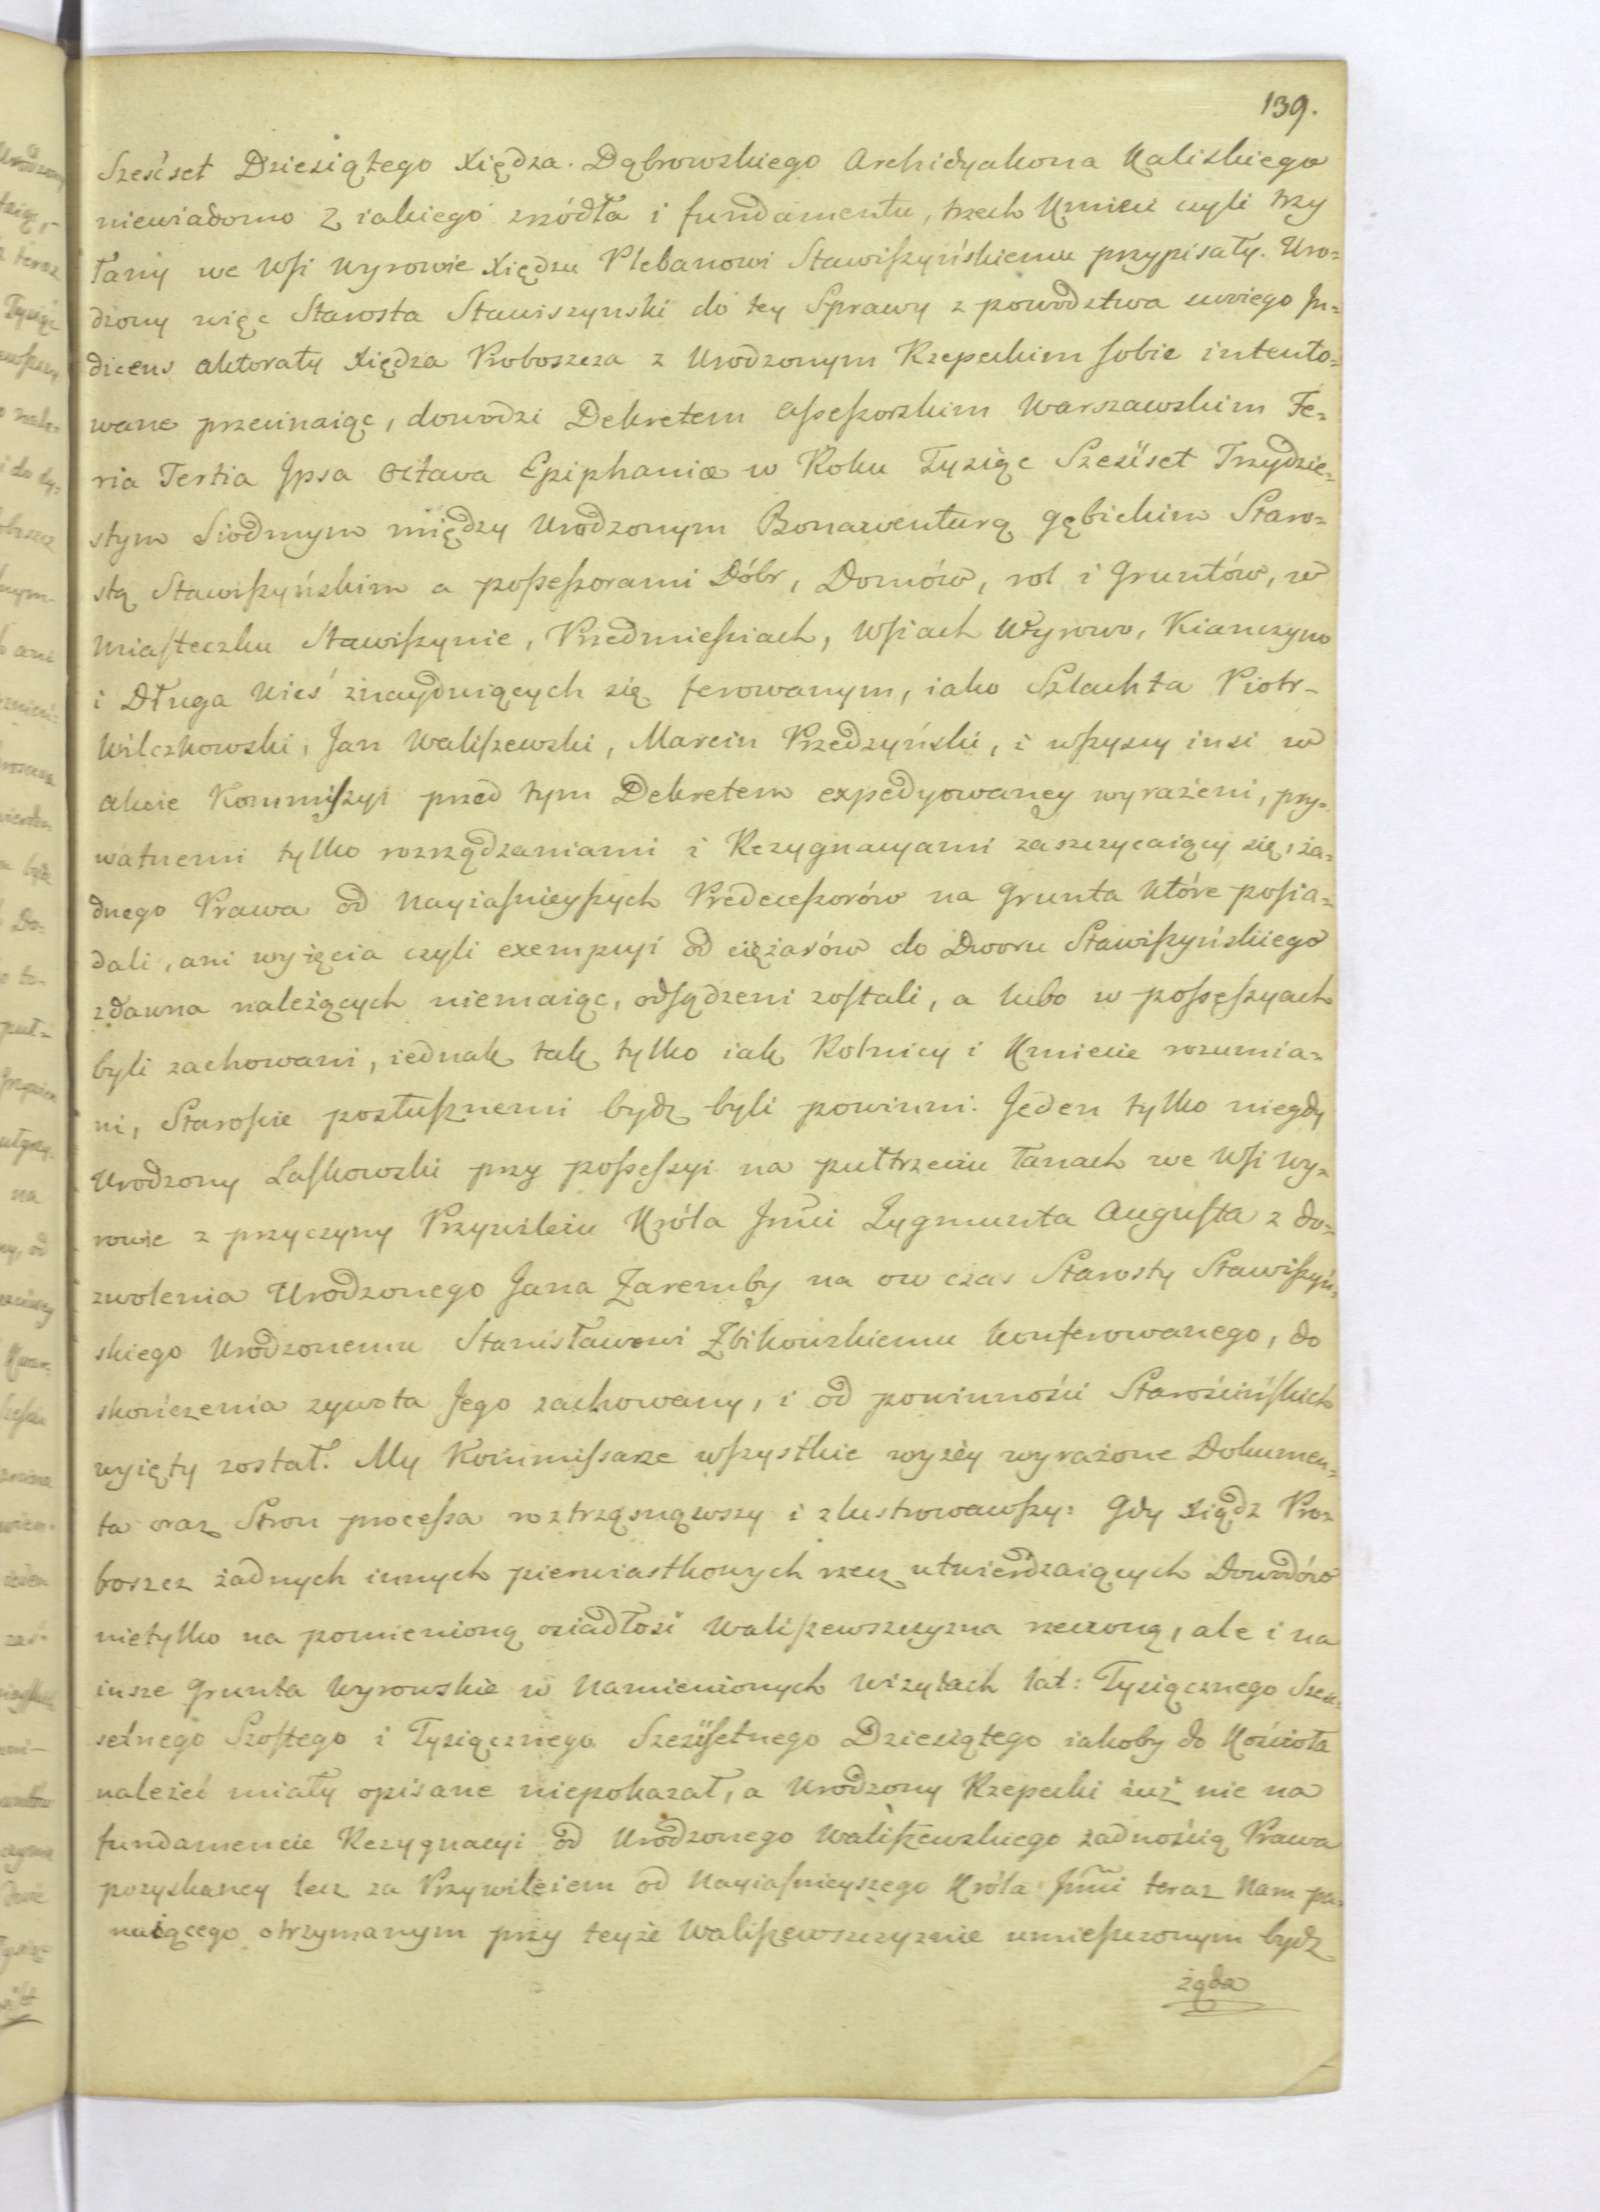 139.
Sześćset Dziesiątego Xiędza. Dąbrowskiego Archidyakona Kaliskiego
niewiadomo z iakiego zrzódła i fundamentu, trzech Kmieci czyli trzy
łany we Wsi Wyrowie Xiędzu Plebanowi Stawiszyńskiemu przypisały. Uro-
dzony więc Starosta Stawiszynski do tey Sprawy z powodztwa swoiego In-
dicens aktoraty Xiędza Proboszcza z Urodzonym Rzepeckim sobie intento-
wane przecinaiąc, dowodzi Dekretem Assessorskim Warszawskim Fe-
ria Tertia Ipsa Octava Epiphaniæ w Roku Tysiąc Sześćset Trzydzie-
stym Siodmym między Urodzonym Bonawenturą Gębickim Staro-
stą Stawiszyńskim a possessorami Dóbr, Domów, rol i Gruntów, w
Miasteczku Stawiszynie, Przedmieściach, Wsiach Wyrowo, Kiączyno
i Długa Wieś znayduiących się ferowanym, iako Szlachta Piotr
Wilczkowski, Jan Waliszewski, Marcin Przedzyński, i wszyscy insi w
akcie Kommissyi przed tym Dekretem expedyowaney wyrażeni, pry-
watnemi tylko rozrządzaniami i Rezygnacyami zaszczycaiący się, ża-
dnego Prawa od Nayiaśnieyszych Predecessorów na Grunta które posia-
dali, ani wyięcia czyli exempcyi od ciężarów do Dworu Stawiszyńskiego
zdawna należących niemaiąc, odsądzeni zostali, a lubo w possessyach
byli zachowani, iednak tak tylko iak Rolnicy i Kmiecie rozumia-
ni, Staroście posłusznemi bydz byli powinni. Jeden tylko niegdy
Urodzony Laskowski przy possessyi na pułtrzeciu łanach we Wsi Wy-
rowie z przyczyny Przywileiu Króla Jmci Zygmunta Augusta z do-
zwolenia Urodzonego Jana Zaremby na ow czas Starosty Stawiszyń-
skiego Urodzonemu Stanisławowi Zbikowskiemu konferowanego, do
skończenia zywota Jego zachowany, i od powinności Starościńskich
wyięty został. My Kommissarze wszystkie wyżey wyrażone Dokumen-
ta oraz Stron processa roztrząsnąwszy i zlustrowawszy: Gdy Xiądz Pro-
boszcz żadnych innych pierwiastkowych rzecz utwierdzaiących Dowodów
nietylko na pomienioną osiadłość Waliszewszczyzna rzeczoną, ale i na
insze Grunta Wyrowskie w Namienionych Wizytach lat: Tysiącznego Sześć-
setnego Szostego i Tysiącznego Sześćsetnego Dziesiątego iakoby do Kościoła
należeć miały opisane niepokazał, a Urodzony Rzepecki iuż nie na
fundamencie Rezygnacyi od Urodzonego Waliszewskiego żadnością Prawa
pozyskaney lecz za Przywileiem od Nayiaśnieyszego Króla Jmci teraz Nam pa-
nuiącego otrzymanym przy teyże Waliszewszczyznie umieszczonym bydz
żąda